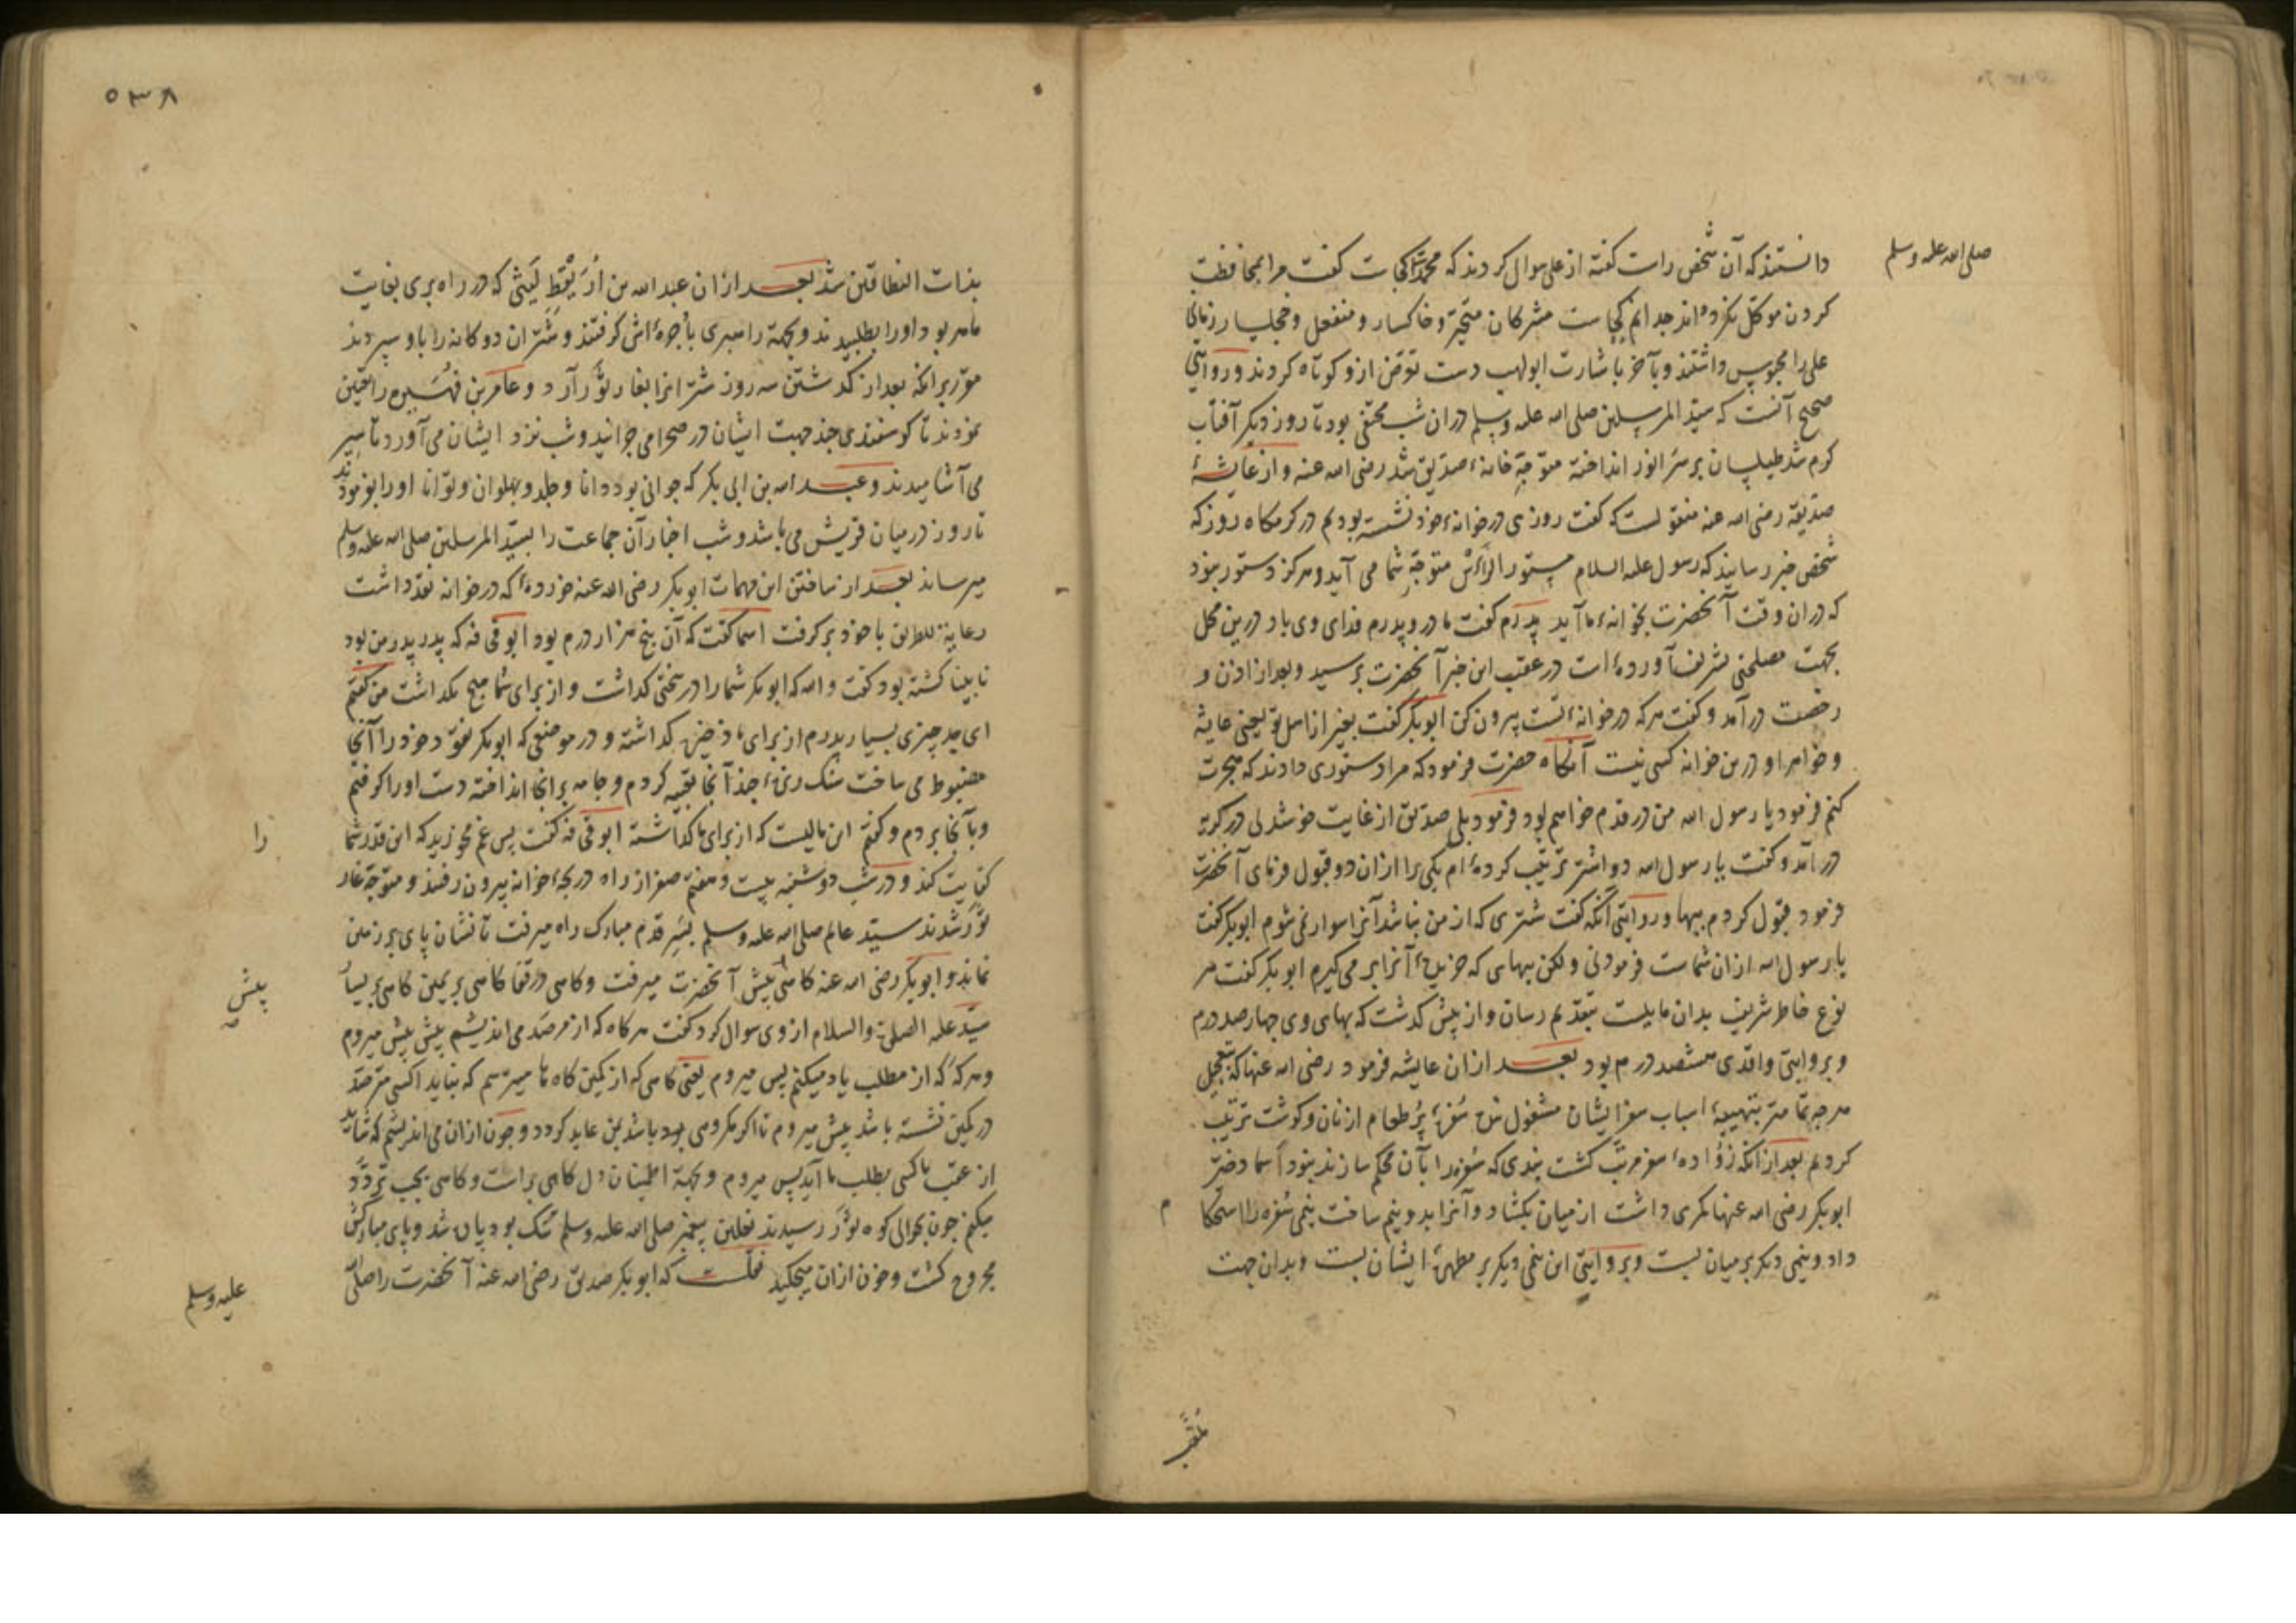 دانستند که آن شخص راست کفته از علی سوال کردند که محمد کجاست کفت مرا بمحافظت
صلی الله علیه وسلم
کردن موکل نکرده اند چه دانم کجاست مشرکان متحیر و خاکسار و منفعل و خجلسار زمانی
علی را محبوس داشتند و بآخر باشارت ابولهب دست تعرض ازو کوتاه کردند و روایتی
صحیح آنست که سید المرسلین صلی الله علیه وسلم دران شب مختفی بود تا روز دیکر آفتاب
کرم شد طیلسان بر سر انور انداخته متوجه خانهٔ صدیق شد رضی الله عنه و از عایشهٔ
صدیقه رضی الله عنه منقولست که کفت روزی در خوانهٔ خود نشسته بودیم در کرمکاه روز که
شخصی خبر رسانید که رسول علیه السلام مستور الرأس متوجه شما می آید و هرکز دستور نبود
که دران وقت آنحضرت بخوانهٔ ما آید پدرم کفت مادر و پدرم فدای وی باد درین محل
بجهت مصلحتی تشریف آورده است در عقب این خبر آنحضرت برسید و بعد از اذن و
رخصت درآمد و کفت هرکه در خوانهٔ تست بیرون کن ابوبکر کفت بغیر از اهل تو یعنی عایشه
و خواهر او درین خوانه کسی نیست آنکاه حضرت فرمود که مرا دستوری دادند که هجرت
کنم فرمود یا رسول الله من در قدم خواهم بود فرمود بلی صدیق از غایت خوشدلی در کریه
درآمد و کفت یا رسول الله دو اشتر ترتیب کرده ام یکی را ازان دو قبول فرمای آنحضرت
فرمود قبول کردم ببها و روایتی آنکه کفت شتری که از من نباشد آنرا سوار نمی شوم ابوبکر کفت
یا رسول الله ازان شماست فرمود نی ولکن ببهای که خریدهٔ آنرا بر می کیرم ابوبکر کفت هر
نوع خاطر شریف بدان مایلست بتقدیم رسان و از پیش کذشت که بهای وی چهارصد درم
و بروایتی واقدی هشتصد درم بود بعد ازان عایشه فرمود رضی الله عنها که بتعجیل
هرچه تمامتر بتهییهٔ اسباب سفر ایشان مشغول شده سفرهٔ پر طعام از نان و کوشت ترتیب
کردیم بعد از انکه زوادهٔ سفر مرتب کشت بندی که سفره را بآن محکم سازند نبود اسما دختر
ابوبکر رضی الله عنها کمری داشت از میان بکشاد و آنرا بدو نیم ساخت نیمی سفره را استحکا م
داد و نیمی دیکر بر میان بست و بروایتی این نیمی دیکر بر مطهرهٔ ایشان بست و بدان جهت
ملقب
٥٣٨
بذات النطاقین شد بعد ازان عبد الله بن اریقط لیثی که در راه بری بغایت
ماهر بود او را بطلبیدند و بجهة راهبری باجرهٔ اش کرفتند و شتران دوکانه را باو سپردند
مقرر برانکه بعد از کذشتن سه روز شترانرا بغار ثور آرد و عامر بن فهیره را تعیین
نمودند تا کوسفندی چند جهت ایشان در صحرا می چرانید و شب نزد ایشان می آورد تا شیر
می آشامیدند و عبد الله بن ابی بکر که جوانی بود دانا و جلد و پهلوان و توانا او را بفرمودند
تا روز در میان قریش می باشد و شب اخبار آن جماعت را بسید المرسلین صلی الله علیه وسلم
میرساند بعد از یافتن این مهمات ابوبکر رضی الله عنه خردهٔ که در خوانه نقد داشت
رعایة للطریق با خود برکرفت اسما کفت که آن پنج هزار درم بود ابو قحافه که پدر پدر من بود
نابینا کشته بود کفت والله که ابوبکر شما را در سختی کذاشت و از برای شما هیچ نکذاشت من کفتم
ای جد چیزی بسیار پدرم از برای ما ذخیره کذاشته و در موضعی که ابوبکر نقود خود را آنجا
مضبوط می ساخت سنک ریزهٔ چند آنجا تعبیه کردم و جامه برانجا انداخته دست او را کرفتم
و بآنجا بردم و کفتم این مالیست که از برای ما کذاشته ابو قحافه کفت پس غم مخورید که این قدر شما
را
کفایت کند و در شب دوشنبه بیست و هفتم صفر از راه دریچهٔ خوانه بیرون رفتند و متوجه غار
ثور شدند سید عالم صلی الله علیه وسلم بسر قدم مبارک راه میرفت تا نشان پای بر زمین
نماند و ابوبکر رضی الله عنه کاهی پیش آنحضرت میرفت و کاهی در قفا کاهی بر یمین کاهی بر یسار
پیش
سید علیه الصلوة والسلام از وی سوال کرد کفت هرکاه که از مرصد می اندیشم پیش پیش میروم
و هرکه که از مطلب یاد میکنم پس میروم یعنی کاهی که از کمین کاه ها میترسم که نباید اکسی مترصد
در کمین نشسته باشد پیش میروم تا اکر مکروهی بود باشد بمن عاید کردد و چون ازان می اندیشم که شاید
از عقب ما کسی بطلب ما آید پس میروم و بجهة اطمینان دل کاهی براست و کاهی بچپ تردد
میکنم چون بحوالی کوه ثور رسیدند نعلین پیغمبر صلی الله علیه وسلم تنک بود پاره شد و پای مبارکش
مجروح کشت و خون ازان میچکید نقلست که ابوبکر صدیق رضی الله عنه آنحضرت را صلی الله
علیه وسلم